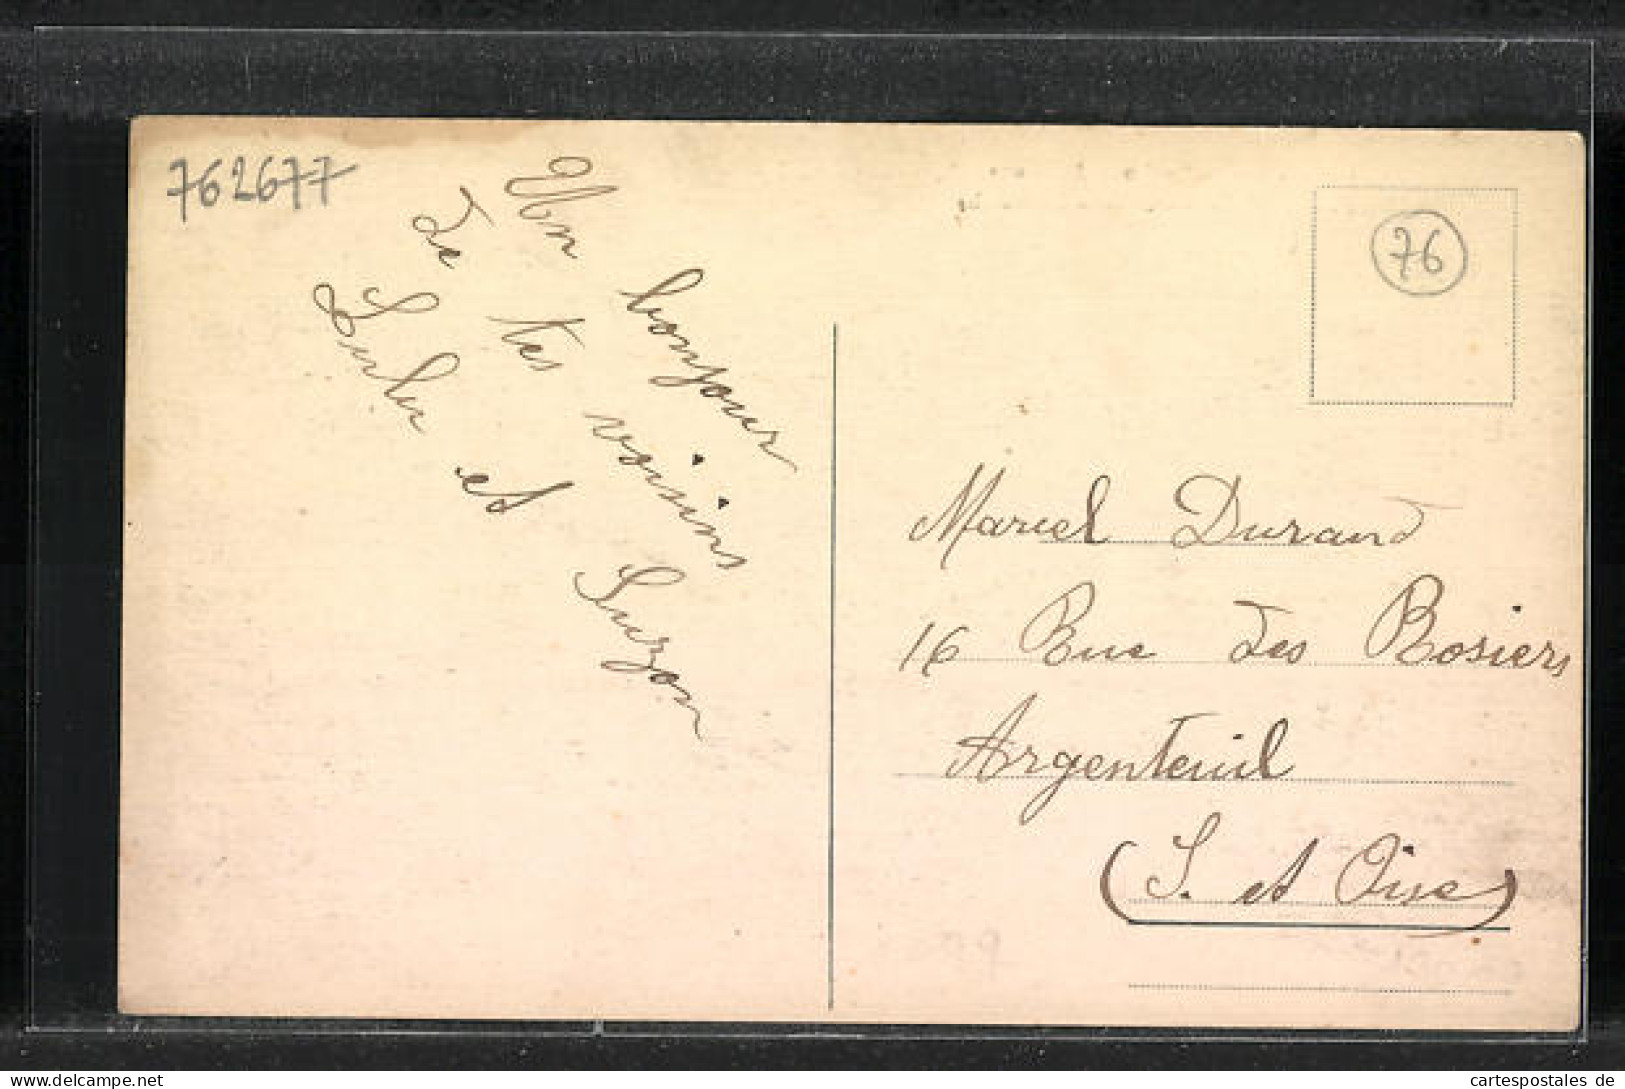 762677
Un bonjour
de tes voisins
Lulu et Suzon
76
Marcel Durand
16 Rue des Rosiers
Argenteuil
(S. et Oise)
cartespostales de